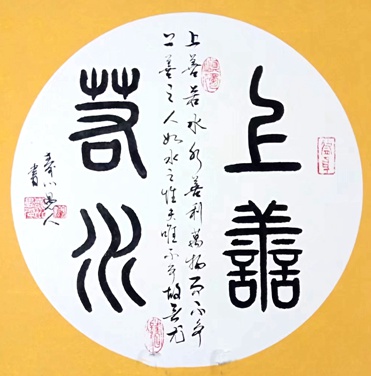 上善
上善若水水善利萬物而不争
上善之人如水之性夫唯不争故无尤
若水
書